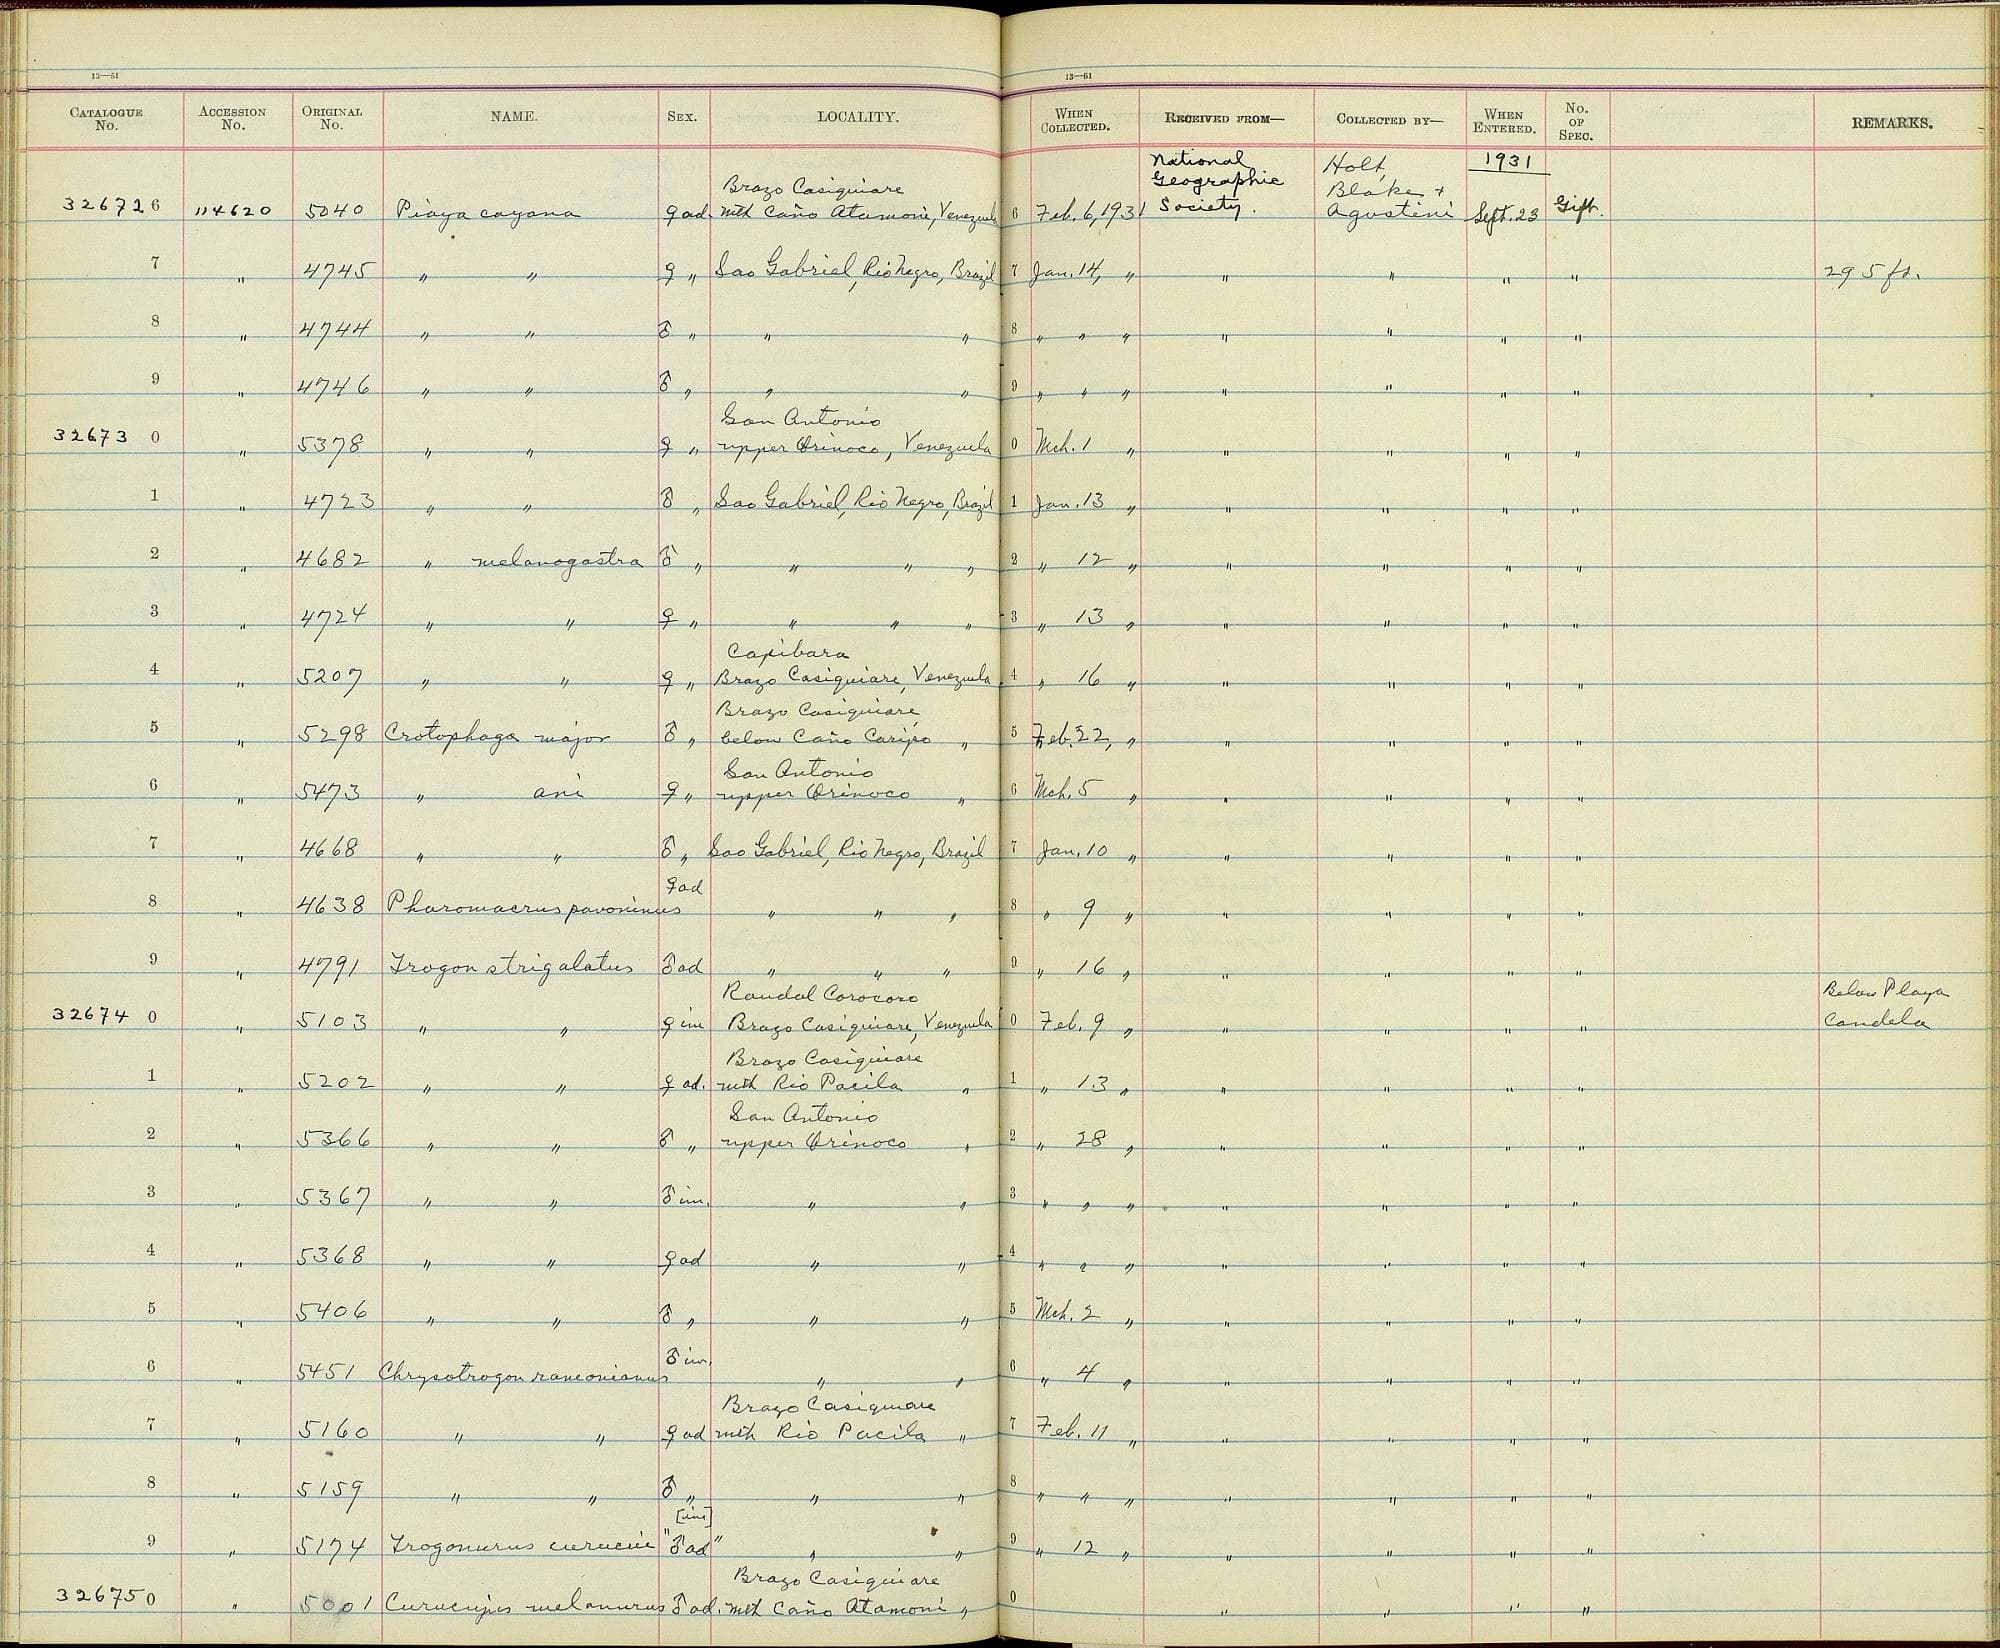 13—51 13—51
CATALOGUE No. ACCESSION No. ORIGINAL No. NAME. SEX. LOCALITY. WHEN COLLECTED. RECEIVED FROM— COLLECTED BY— WHEN ENTERED. No. OF SPEC. REMARKS.
National Geographic Society. Holt, Blake & Agostini 1931
Brazo Casiquiare
326726 114620 5040 Piaya cayana ♀ ad. mth Caño Atamoni, Venezuela 6 Feb. 6, 1931 Sept. 23 Gift.
7 " 4745 " " ♀ " Sao Gabriel, Rio Negro, Brazil 7 Jan. 14, " " " " " 295 ft.
8 " 4744 " " ♂ " " " 8 " " " " " " "
9 " 4746 " " ♂ " " " 9 " " " " " " "
San Antonio
32673 0 " 5378 " " ♀ " upper Orinoco, Venezuela 0 Mch. 1 " " " " "
1 " 4723 " " ♂ " Sao Gabriel, Rio Negro, Brazil 1 Jan. 13 " " " " "
2 " 4682 " melanogastra ♂ " " " " 2 " 12 " " " " "
3 " 4724 " " ♀ " " " " 3 " 13 " " " " "
Capibara
4 " 5207 " " ♀ " Brazo Casiquiare, Venezuela 4 " 16 " " " " "
Brazo Casiquiare,
5 " 5298 Crotophaga major ♂ " below Caño Caripo " 5 Feb. 22, " " " " "
San Antonio
6 " 5473 " ani ♀ " upper Orinoco " 6 Mch. 5 " " " " "
7 " 4668 " " ♂ " Sao Gabriel, Rio Negro, Brazil 7 Jan. 10 " " " " "
8 " 4638 Pharomacrus pavoninus ♀ ad " " " 8 " 9 " " " " "
9 " 4791 Trogon strigalatus ♂ ad " " " 9 " 16 " " " " "
Raudal Corocoro Below Playa
32674 0 " 5103 " " ♀ im Brazo Casiquiare, Venezuela 0 Feb. 9 " " " " " Candela
Brazo Casiquiare
1 " 5202 " " ♀ ad. mth Rio Pacila " 1 " 13 " " " " "
San Antonio
2 " 5366 " " ♂ " upper Orinoco " 2 " 28 " " " " "
3 " 5367 " " ♂ im. " " 3 " " " " " " "
4 " 5368 " " ♀ ad " " 4 " " " " " " "
5 " 5406 " " ♂ " " " 5 Mch. 2 " " " " "
6 " 5451 Chrysotrogon ramonianus ♂ im. " " 6 " 4 " " " " "
Brazo Casiquiare
7 " 5160 " " ♀ ad mth Rio Pacila " 7 Feb. 11 " " " " "
8 " 5159 " " ♂ " " " 8 " " " " " " "
[im]
9 " 5174 Trogonurus curucui "♂ ad" " " 9 " 12 " " " " "
Brazo Casiquiare
326750 " 5001 Curucujus melanurus ♂ ad. mth Caño Atamoni " 0 " " " "